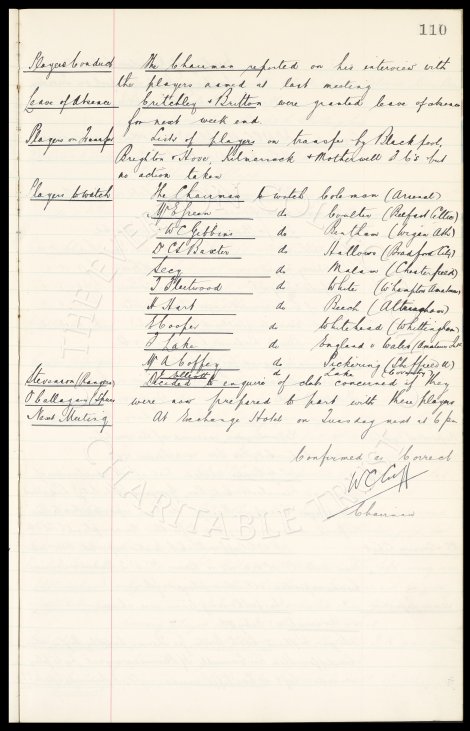 110
Players Conduct The Chairman reported on his interview with
the players named at last meeting
Leave of Absence Critchley & Britton were granted leave of absence
for next week end.
Players on Transfer Lists of players on transfer by Blackpool,
Brighton & Hove, Kilmarnock & Motherwell F.C's but
no action taken
Players to watch The Chairman to watch Coleman (Arsenal)
Mr E Green do Coulter (Belfast Celtic)
" W C Gibbins do Rentham (Wigan Ath)
Dr C S Baxter do Hallows (Bradford City)
Secy do Malam (Chesterfield)
T Fleetwood do White (W'hampton Amateurs)
H Hart do Beach (Altrincham)
H Cooper do Whitehead (Whittingham)
J Lake do England v Wales (Amateur Int)
Mr A Coffey do Pickering (Sheffield U)
do Lake (Coventry)
Stevenson (Rangers) Decided to enquire of club concerned if they
O'Callaghan (Spurs) were now prepared to part with these players
Next Meeting At Exchange Hotel on Tuesday next at 6 pm
Confirmed as Correct
W C Cuff
Chairman
THE EVERTON
CHARITABLE TRUST